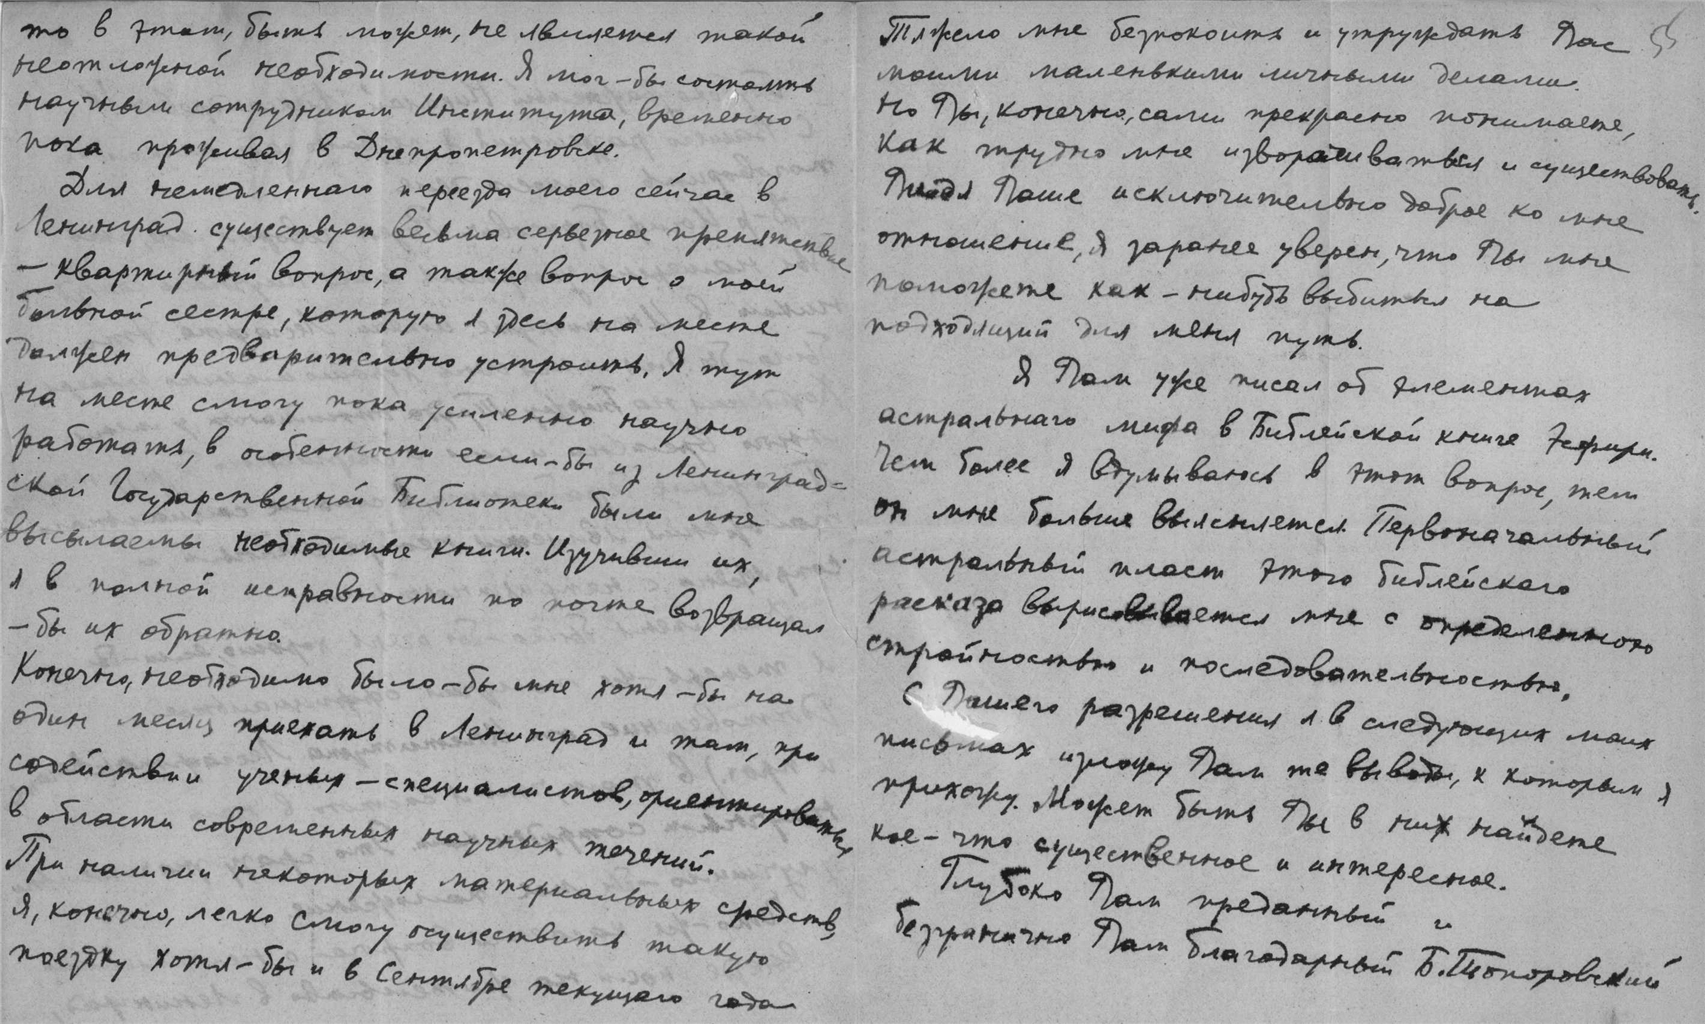 то в этом, быть может, не является такой
неотложной необходимости. Я мог-бы состоять
научным сотрудником Института, временно
пока проживая в Днепропетровске.
Для немедленнаго переезда моего сейчас в
Ленинград существует весьма серьезное препятствие
— квартирный вопрос, а также вопрос о моей
больной сестре, которую я здесь на месте
должен предварительно устроить. Я тут
на месте смогу пока усиленно научно
работать, в особенности если-бы из Ленинград=
ской Государственной Библиотеки были мне
высылаемы необходимые книги. Изучивши их,
я в полной исправности по почте возвращал
-бы их обратно.
Конечно, необходимо было-бы мне хотя-бы на
один месяц приехать в Ленинград и там, при
содействии ученых-специалистов, ориентироваться
в области современных научных течений.
При наличии некоторых материальных средств,
я, конечно, легко смогу осуществить такую
поездку хотя-бы и в Сентябре текущаго года
Тяжело мне безпокоить и утруждать Вас
моими маленькими личными делами.
Но Вы, конечно, сами прекрасно понимаете,
как трудно мне изворачиваться и существовать.
Видя Ваше исключительно доброе ко мне
отношение, я заранее уверен, что Вы мне
поможете как-нибудь выбиться на
подходящий для меня путь.
Я Вам уже писал об элементах
астральнаго мифа в Библейской книге Эсфирь.
Чем более я вдумываюсь в этот вопрос, тем
он мне больше выясняется. Первоначальный
астральный пласт этого библейскаго
расказа вырисовывается мне с определенною
стройностью и последовательностью.
С Вашего разрешения я в следующих моих
письмах изложу Вам те выводы, к которым я
прихожу. Может быть Вы в них найдете
кое-что существенное и интересное.
Глубоко Вам преданный и
безгранично Вам благодарный Б. Топоровский